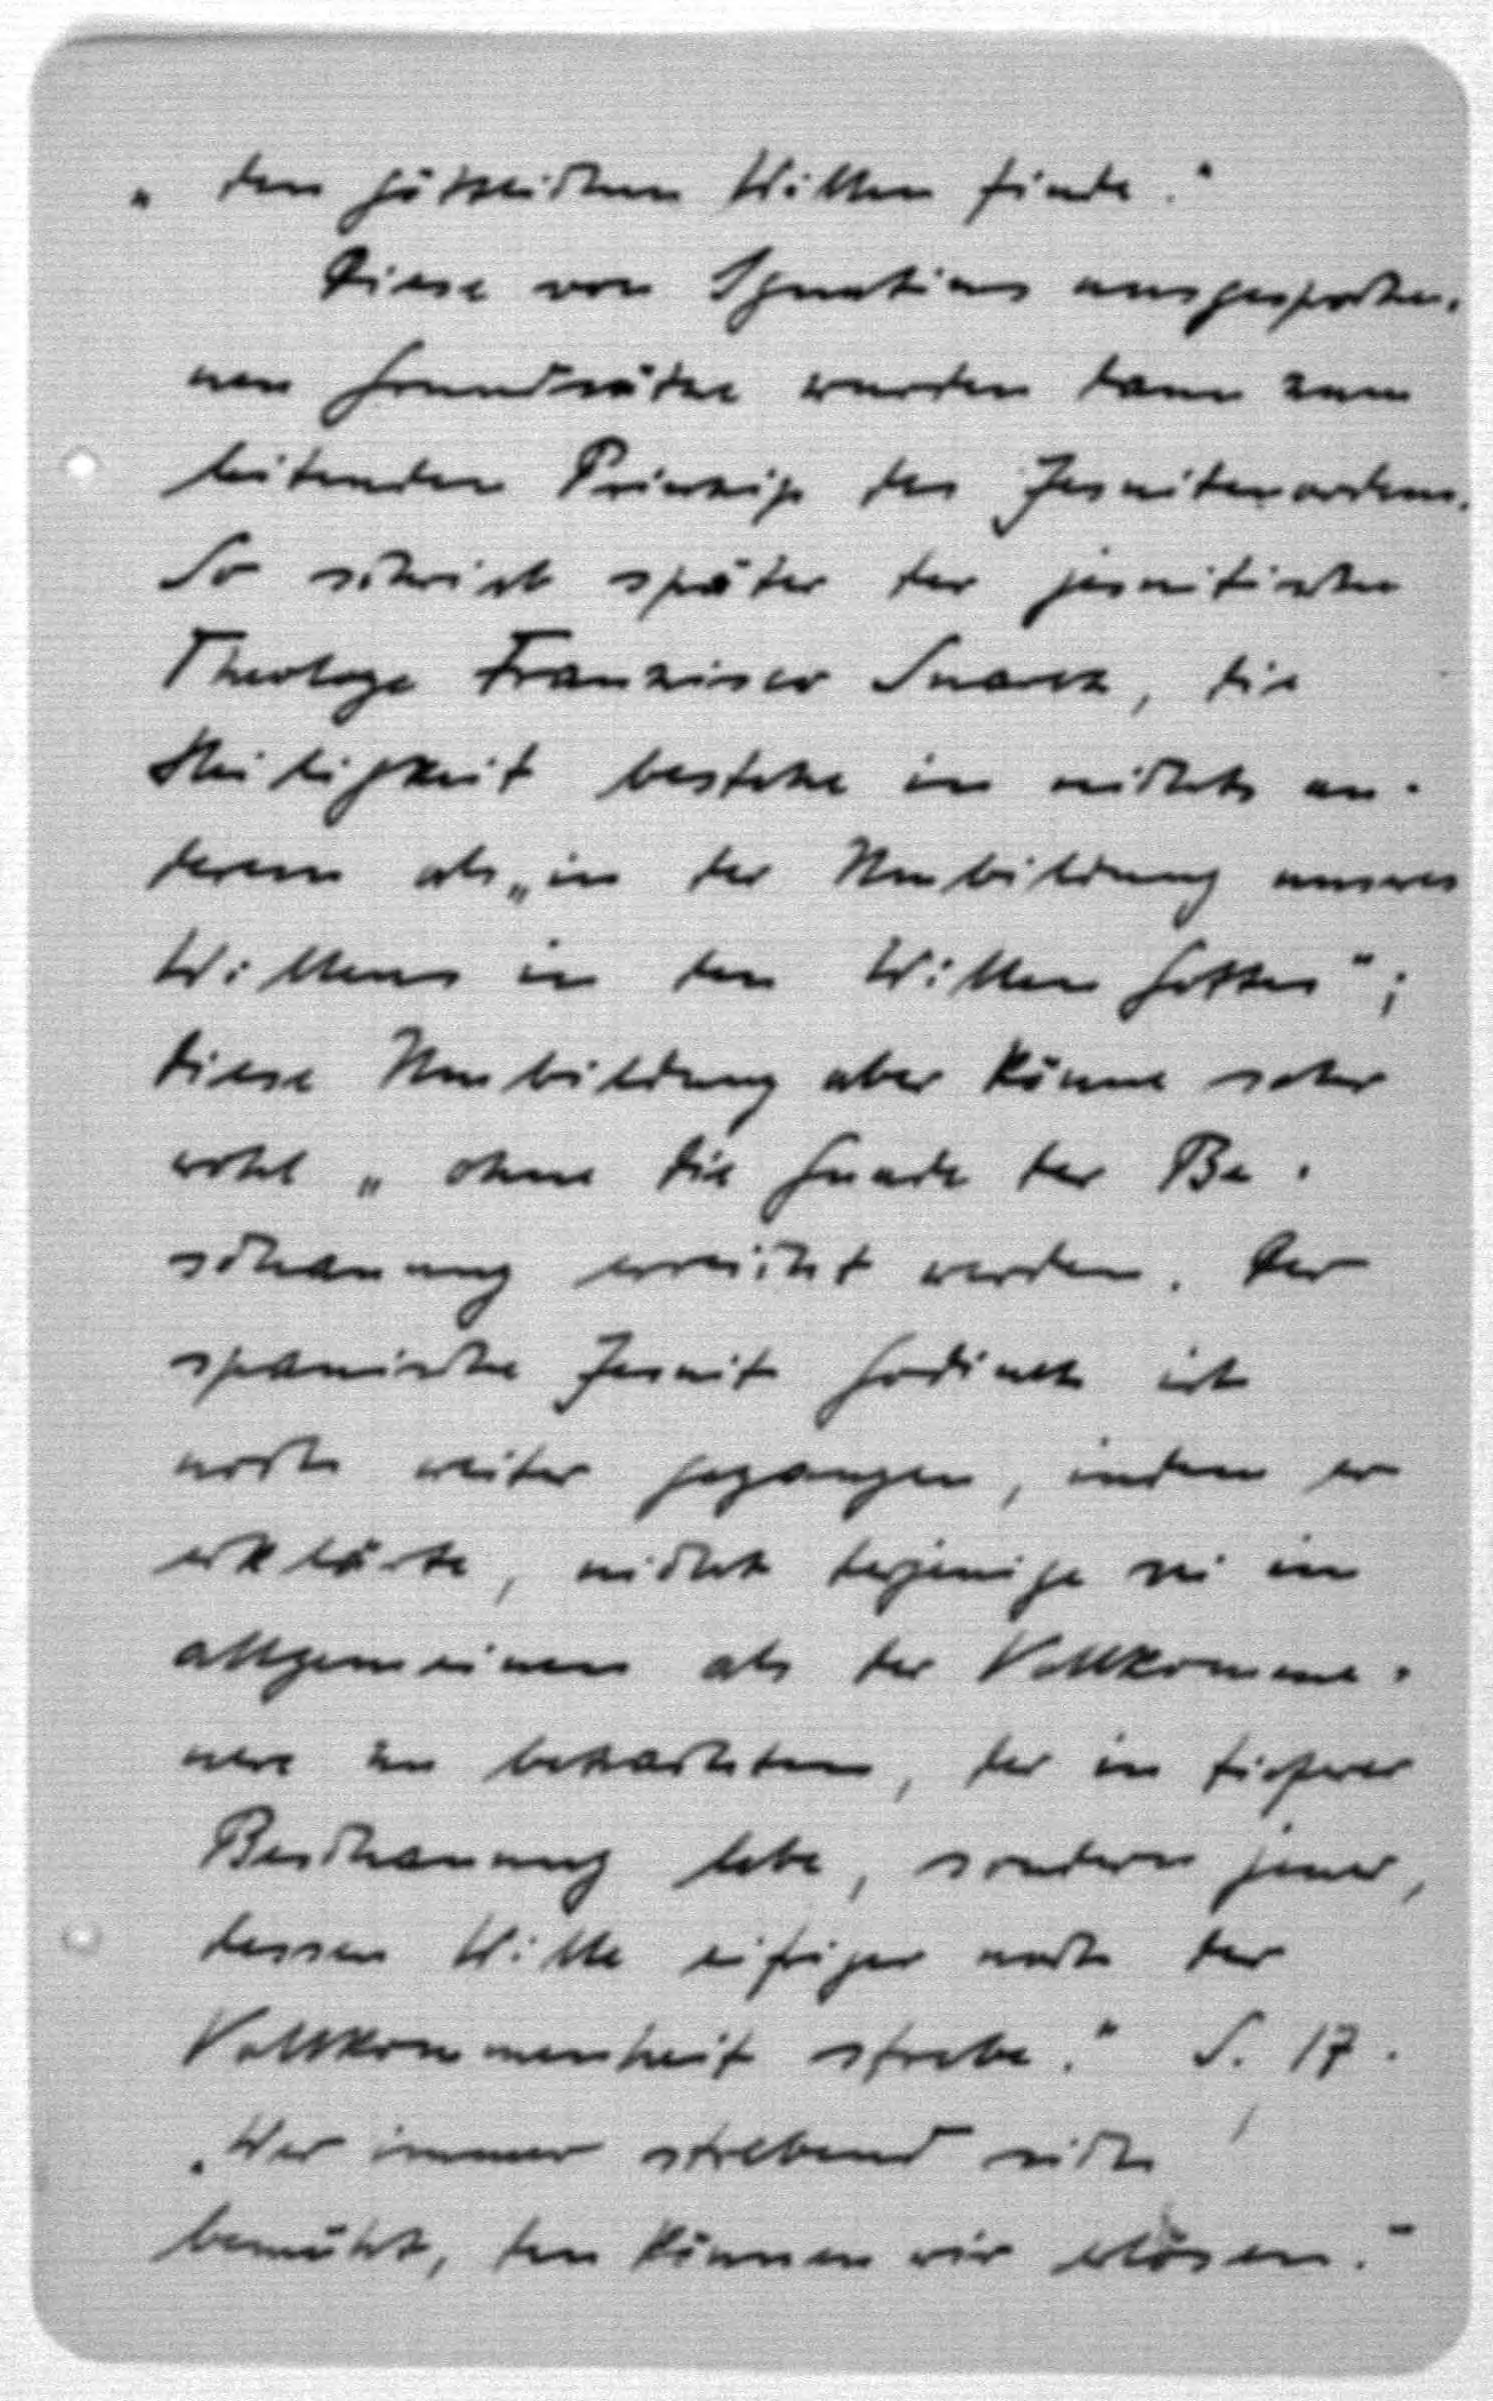 „ den göttlichen Willen finde."
Diese von Ignatius ausgesproche-
nen Grundsätze wurden dann zum
leitenden Prinzip des Jesuitenordens.
So schrieb später der jesuitische
Theologe Franzisco Suarez, die
Heiligkeit bestehe in nichts an-
derem als „in der Umbildung unseres
Willens in den Willen Gottes";
diese Umbildung aber könne sehr
wohl „ohne die Gnade der Be-
schauung erreicht werden. Der
spanische Jesuit Godinez ist
noch weiter gegangen, indem er
erklärte, nicht derjenige sei im
allgemeinen als der Vollkomme-
nere zu betrachten, der in tieferer
Beschauung lebe, sondern jener,
dessen Wille eifriger nach der
Vollkommenheit strebe." S. 17.
„Wer immer strebend sich
bemüht, den können wir erlösen."